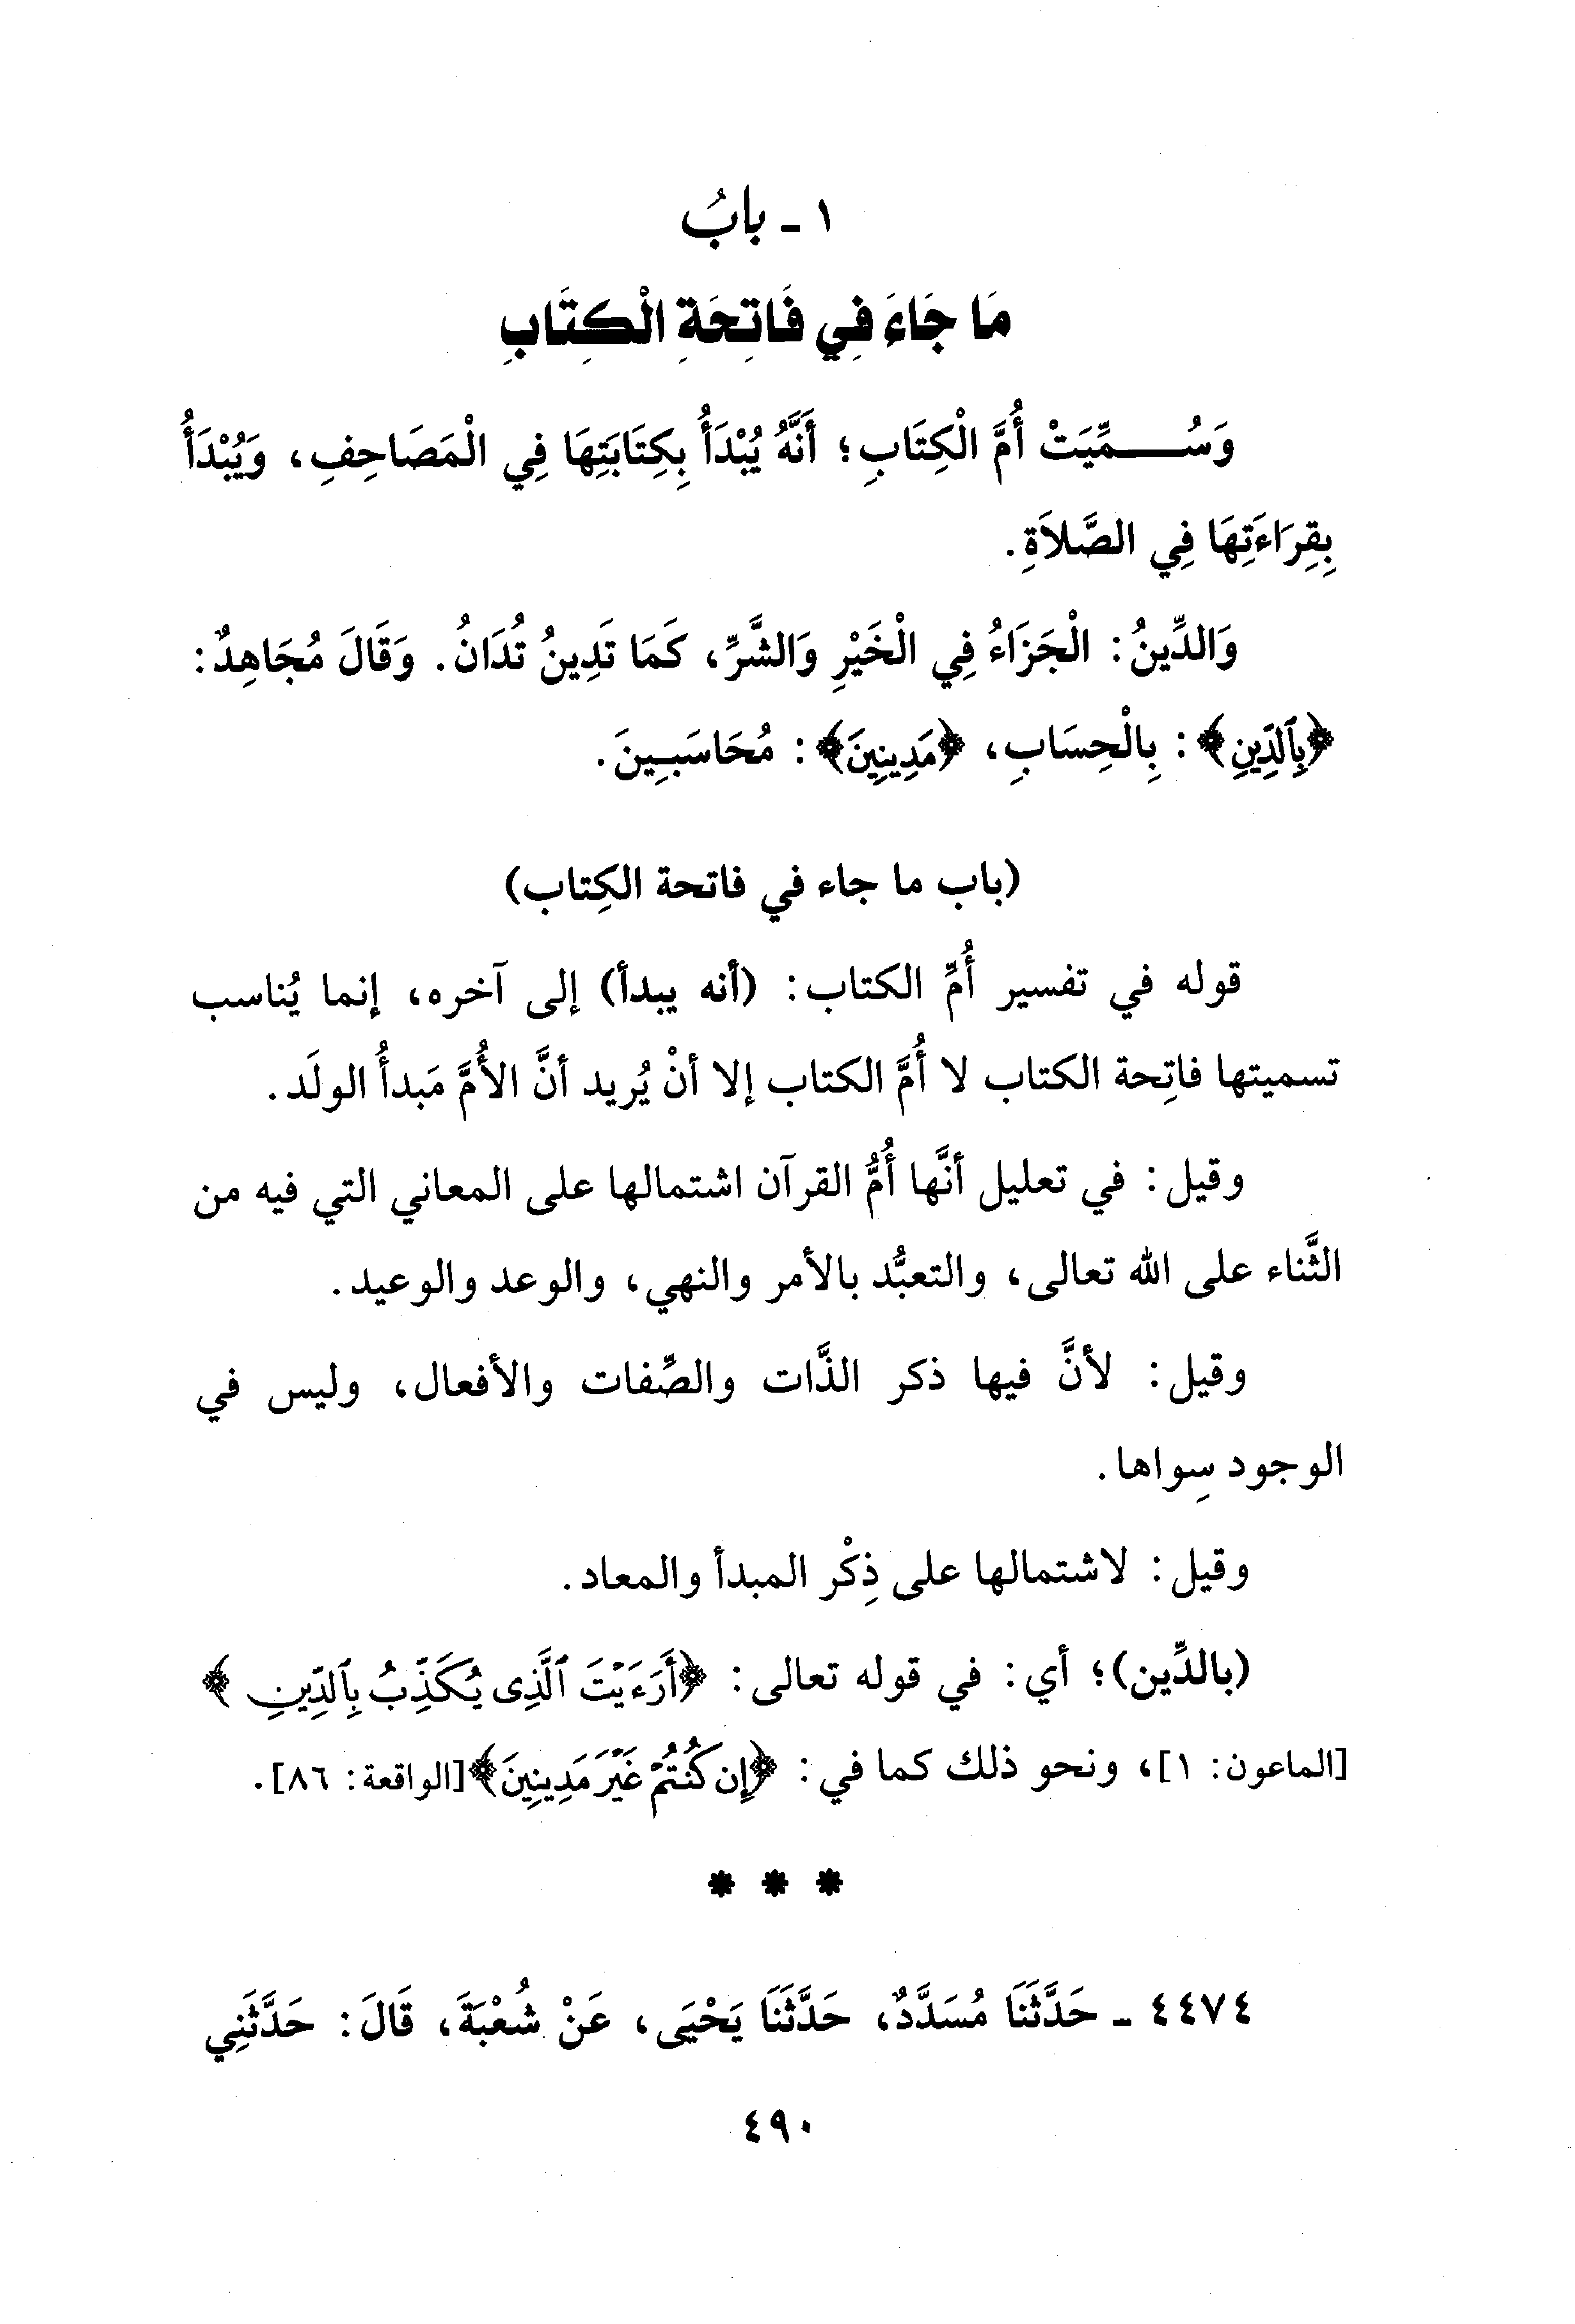 ١ ـ بابُ
مَا جَاءَ فِي فَاتِحَةِ الْكِتَابِ
وَسُـــــمِّيَتْ أُمَّ الْكِتَابِ؛ أَنَّهُ يُبْدَأُ بِكِتَابَتِهَا فِي الْمَصَاحِفِ، وَيُبْدَأُ
بِقِرَاءَتِهَا فِي الصَّلاَةِ.
وَالدِّينُ: الْجَزَاءُ فِي الْخَيْرِ وَالشَّرِّ، كَمَا تَدِينُ تُدَانُ. وَقَالَ مُجَاهِدٌ:
﴿بِٱلدِّينِ﴾: بِالْحِسَابِ، ﴿مَدِينِينَ﴾: مُحَاسَبِينَ.
(باب ما جاء في فاتحة الكِتاب)
قوله في تفسير أُمِّ الكتاب: (أنه يبدأ) إلى آخره، إنما يُناسب
تسميتها فاتِحة الكتاب لا أُمَّ الكتاب إلا أنْ يُريد أنَّ الأُمَّ مَبدأُ الولَد.
وقيل: في تعليل أنَّها أُمُّ القرآن اشتمالها على المعاني التي فيه من
الثَّناء على الله تعالى، والتعبُّد بالأمر والنهي، والوعد والوعيد.
وقيل: لأنَّ فيها ذكر الذَّات والصِّفات والأفعال، وليس في
الوجود سِواها.
وقيل: لاشتمالها على ذِكْر المبدأ والمعاد.
(بالدِّين)؛ أي: في قوله تعالى: ﴿أَرَءَيْتَ ٱلَّذِى يُكَذِّبُ بِٱلدِّينِ﴾
[الماعون: ١]، ونحو ذلك كما في: ﴿إِن كُنتُمْ غَيْرَ مَدِينِينَ﴾[الواقعة: ٨٦].
* * *
٤٤٧٤ ـ حَدَّثَنَا مُسَدَّدٌ، حَدَّثَنَا يَحْيَى، عَنْ شُعْبَةَ، قَالَ: حَدَّثَنِي
٤٩٠